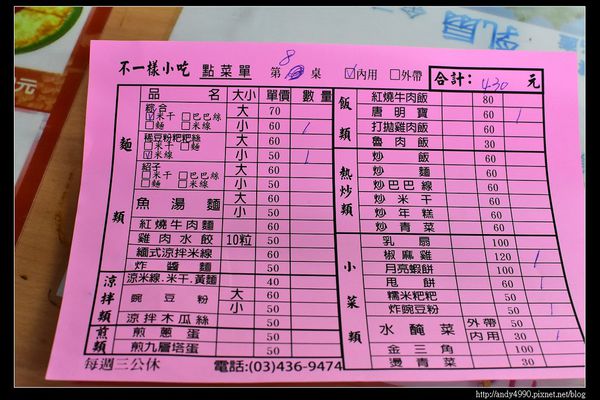 乳扇
不一樣小吃 點菜單 第 8 桌 ☑內用 □外帶 合計: 430 元
麵類
品名 大小 單價 數量
綜合 ☑米干 □巴巴絲 □麵 □米線 大 70
小 60 /
稀豆粉粑粑絲 □米干 □麵 ☑米線 大 60
小 50 /
紹子 □米干 □巴巴絲 □麵 □米線 大 60
小 50
魚湯麵 大 60
小 50
紅燒牛肉麵 60
雞肉水餃 10粒 50
緬式涼拌米線 60
炸醬麵 50
涼拌類
涼米線.米干.黃麵 40
豌豆粉 大 60
小 50
涼拌木瓜絲 50
煎類
煎蔥蛋 50
煎九層塔蛋 50
每週三公休 電話:(03)436-9474
飯類
紅燒牛肉飯 80
唐明寶 60 /
打拋雞肉飯 60
魯肉飯 30
熱炒類
炒飯 60
炒麵 60
炒巴巴線 60
炒米干 60
炒年糕 60
炒青菜 60
小菜類
乳扇 100
椒麻雞 120 /
月亮蝦餅 100
甩餅 60 /
糯米粑粑 50
炸豌豆粉 50 /
水醃菜 外帶 50
內用 30 /
金三角 100
燙青菜 30
http://andy4990.pixnet.net/blog